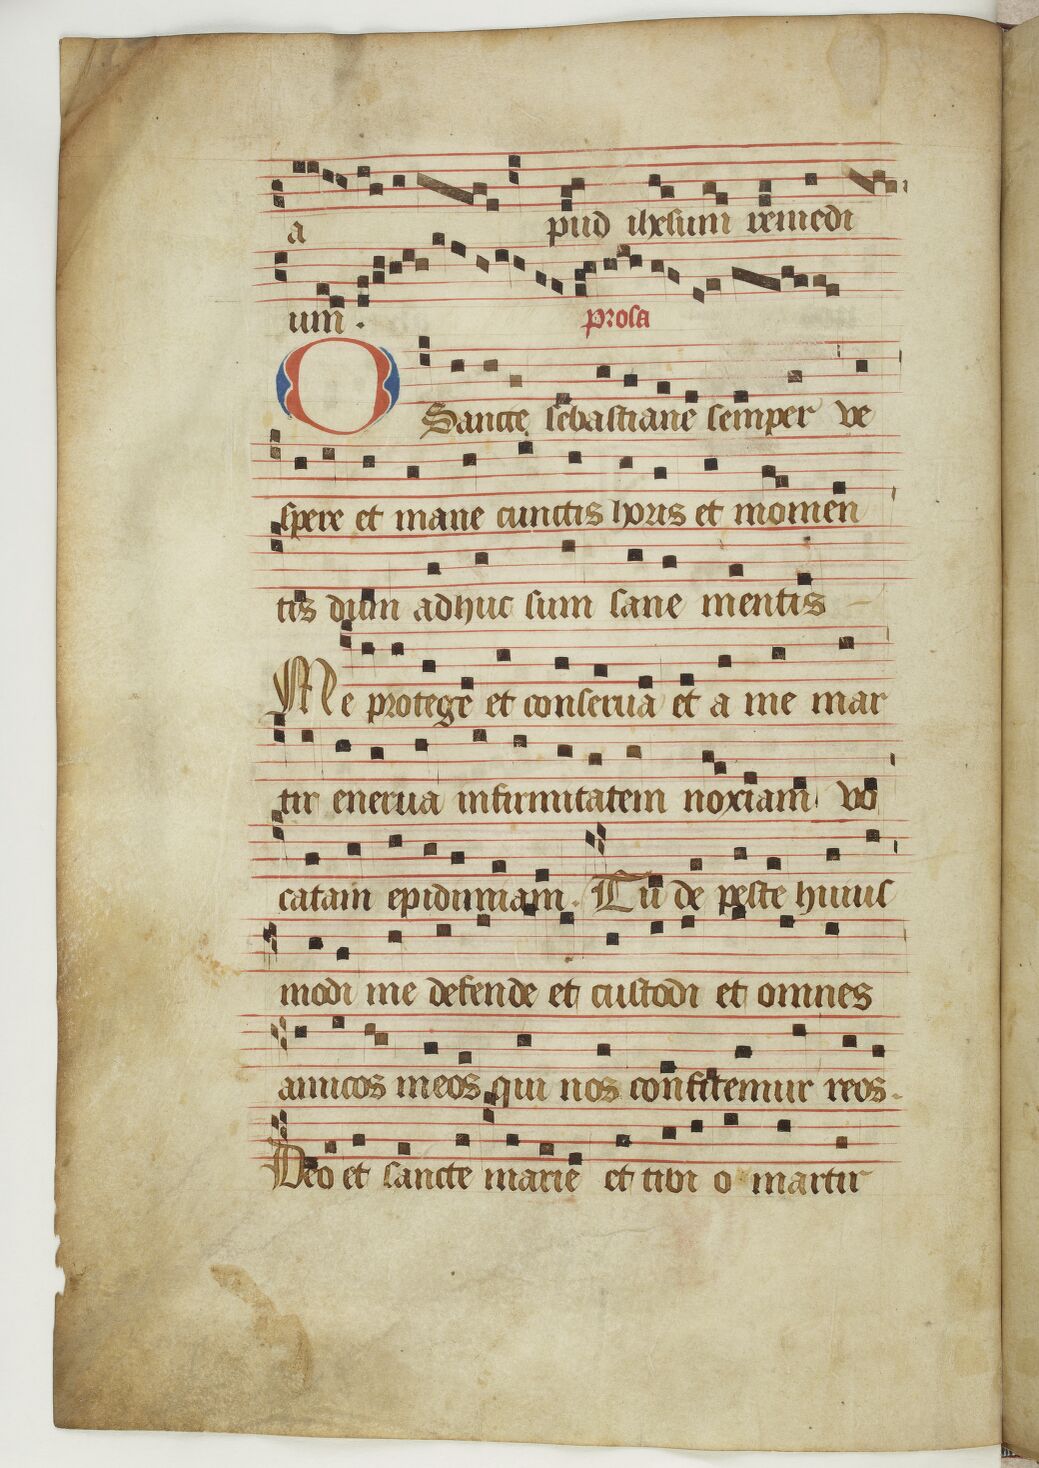 a pud ihesum remedi
um . prosa
O Sancte sebastiane semper ve
spere et mane cunctis horis et momen
tis dum adhuc sum sane mentis
Me protege et conserua et a me mar
tir enerua infirmitatem noxiam vo
catam epidimiam . Tu de peste huius
modi me defende et custodi et omnes
amicos meos qui nos confitemur reos .
Deo et sancte marie et tibi o martir